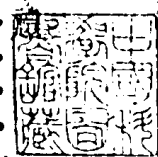 中國科
學院圖
書館藏